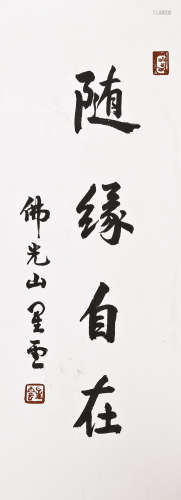 随缘自在
佛光山星雲